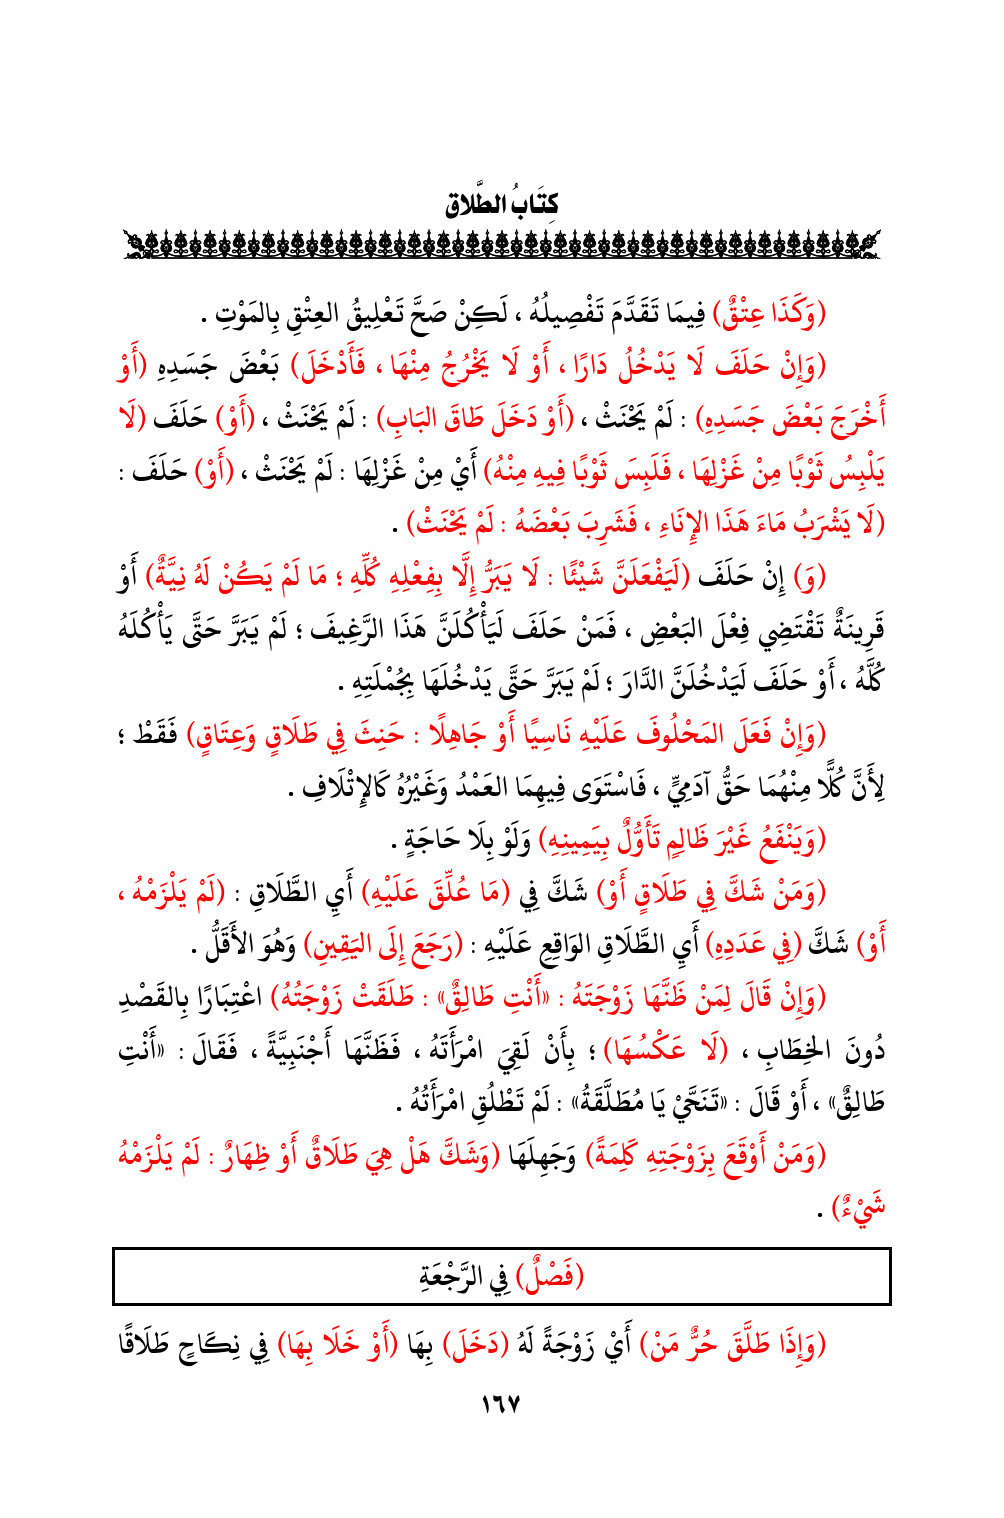 كِتَابُ الطَّلَاق
(وَكَذَا عِتْقٌ) فِيمَا تَقَدَّمَ تَفْصِيلُهُ ، لَكِنْ صَحَّ تَعْلِيقُ العِتْقِ بِالمَوْتِ .
(وَإِنْ حَلَفَ لَا يَدْخُلُ دَارًا ، أَوْ لَا يَخْرُجُ مِنْهَا ، فَأَدْخَلَ) بَعْضَ جَسَدِهِ (أَوْ
أَخْرَجَ بَعْضَ جَسَدِهِ) : لَمْ يَحْنَثْ ، (أَوْ دَخَلَ طَاقَ البَابِ) : لَمْ يَحْنَثْ ، (أَوْ) حَلَفَ (لَا
يَلْبِسُ ثَوْبًا مِنْ غَزْلِهَا ، فَلَبِسَ ثَوْبًا فِيهِ مِنْهُ) أَيْ مِنْ غَزْلِهَا : لَمْ يَحْنَثْ ، (أَوْ) حَلَفَ :
(لَا يَشْرَبُ مَاءَ هَذَا الإِنَاءِ ، فَشَرِبَ بَعْضَهُ : لَمْ يَحْنَثْ) .
(وَ) إِنْ حَلَفَ (لَيَفْعَلَنَّ شَيْئًا : لَا يَبَرُّ إِلَّا بِفِعْلِهِ كُلِّهِ ؛ مَا لَمْ يَكُنْ لَهُ نِيَّةٌ) أَوْ
قَرِينَةٌ تَقْتَضِي فِعْلَ البَعْضِ ، فَمَنْ حَلَفَ لَيَأْكُلَنَّ هَذَا الرَّغِيفَ ؛ لَمْ يَبَرَّ حَتَّى يَأْكُلَهُ
كُلَّهُ ، أَوْ حَلَفَ لَيَدْخُلَنَّ الدَّارَ ؛ لَمْ يَبَرَّ حَتَّى يَدْخُلَهَا بِجُمْلَتِهِ .
(وَإِنْ فَعَلَ المَحْلُوفَ عَلَيْهِ نَاسِيًا أَوْ جَاهِلًا : حَنِثَ فِي طَلَاقٍ وَعِتَاقٍ) فَقَطْ ؛
لِأَنَّ كُلًّا مِنْهُمَا حَقُّ آدَمِيٍّ ، فَاسْتَوَى فِيهِمَا العَمْدُ وَغَيْرُهُ كَالإِتْلَافِ .
(وَيَنْفَعُ غَيْرَ ظَالِمٍ تَأَوُّلٌ بِيَمِينِهِ) وَلَوْ بِلَا حَاجَةٍ .
(وَمَنْ شَكَّ فِي طَلَاقٍ أَوْ) شَكَّ فِي (مَا عُلِّقَ عَلَيْهِ) أَيِ الطَّلَاقِ : (لَمْ يَلْزَمْهُ ،
أَوْ) شَكَّ (فِي عَدَدِهِ) أَيِ الطَّلَاقِ الوَاقِعِ عَلَيْهِ : (رَجَعَ إِلَى اليَقِينِ) وَهُوَ الأَقَلُّ .
(وَإِنْ قَالَ لِمَنْ ظَنَّهَا زَوْجَتَهُ : «أَنْتِ طَالِقٌ» : طَلَقَتْ زَوْجَتُهُ) اعْتِبَارًا بِالقَصْدِ
دُونَ الخِطَابِ ، (لَا عَكْسُهَا) ؛ بِأَنْ لَقِيَ امْرَأَتَهُ ، فَظَنَّهَا أَجْنَبِيَّةً ، فَقَالَ : «أَنْتِ
طَالِقٌ» ، أَوْ قَالَ : «تَنَحَّيْ يَا مُطَلَّقَةُ» : لَمْ تَطْلُقِ امْرَأَتُهُ .
(وَمَنْ أَوْقَعَ بِزَوْجَتِهِ كَلِمَةً) وَجَهِلَهَا (وَشَكَّ هَلْ هِيَ طَلَاقٌ أَوْ ظِهَارٌ : لَمْ يَلْزَمْهُ
شَيْءٌ) .
(فَصْلٌ) فِي الرَّجْعَةِ
(وَإِذَا طَلَّقَ حُرٌّ مَنْ) أَيْ زَوْجَةً لَهُ (دَخَلَ) بِهَا (أَوْ خَلَا بِهَا) فِي نِكَاحٍ طَلَاقًا
١٦٧